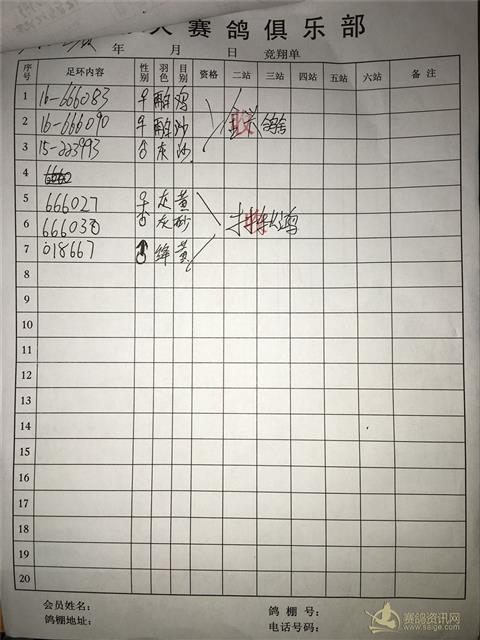 赛鸽俱乐部
年 月 日 竞翔单
序号 足环内容 性别 羽色 目别 资格 二站 三站 四站 五站 六站 备注
1 16-666083 ♀ 雨 鸡
2 16-666090 ♀ 雨 沙
3 15-223993 ♂ 灰 沙 鸽舍
4
5 666027 ♀ 灰 黄
6 666030 ♂ 灰 砂
7 018667 ♂ 绛 黄
8
9
10
11
12
13
14
15
16
17
18
19
20
会员姓名： 鸽棚号：
鸽棚地址： 电话号码：
赛鸽资讯网
www.saige.com